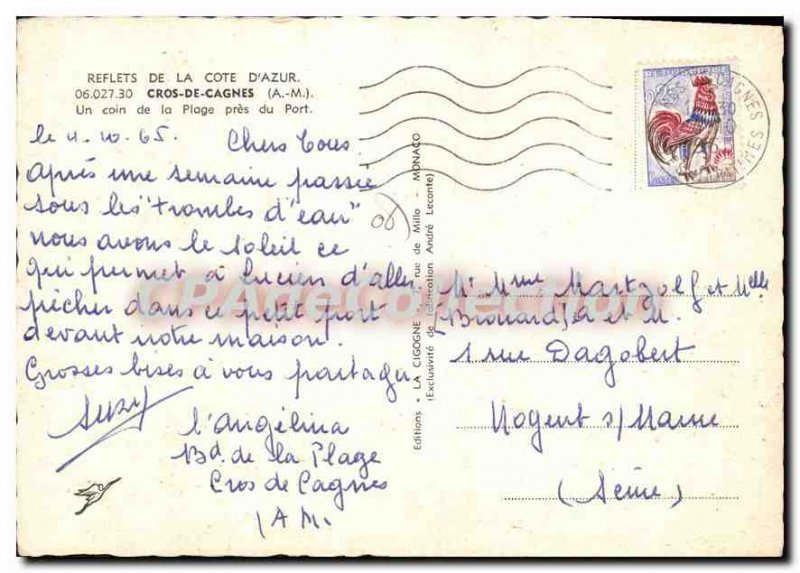 REFLETS DE LA COTE D'AZUR.
06.027.30 CROS-DE-CAGNES (A.-M.).
Un coin de la Plage près du Port.
le 4.10.65. Chers Tous
après une semaine passée
sous les "trombes d'eau"
nous avons le soleil ce
qui permet à Lucien d'aller
pêcher dans ce petit port
devant notre maison.
Grosses bises à vous partager.
Suzy
L'Angélina
Bd. de la Plage
Cros de Cagnes
(A.M.
Editions "LA CIGOGNE" rue de Millo - MONACO
(Exclusivité de fabrication André Leconte)
CPA de Collection
Mr Mme Martzolf et Melle
(Brouard) et M.
1 rue Dagobert
Nogent s/Marne
(Seine)